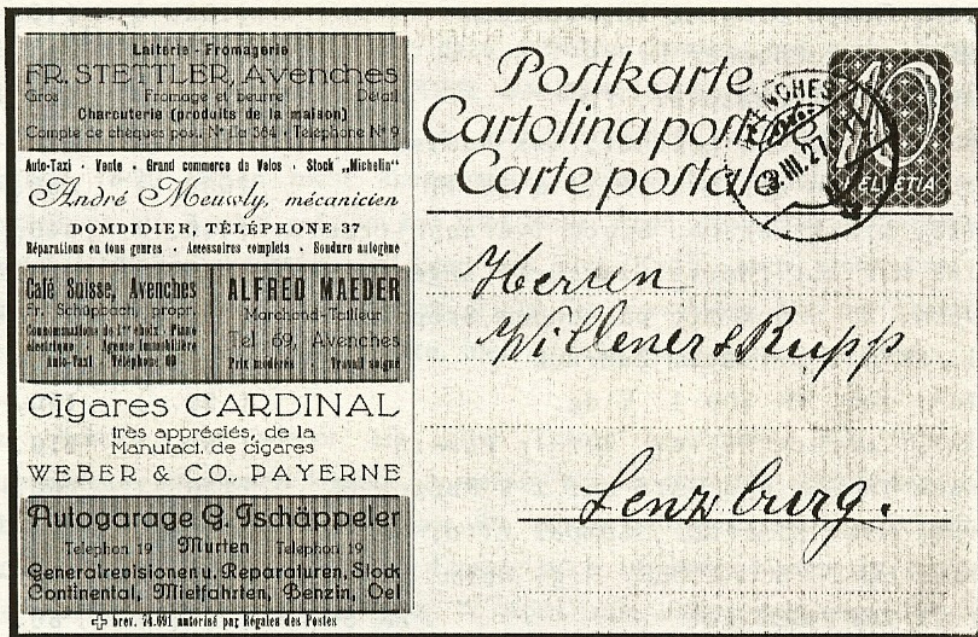 Laiterie - Fromagerie
FR. STETTLER, Avenches
Gros Fromage et beurre Détail
Charcuterie (produits de la maison)
Compte de chèques post. Nº IIa 364 - Téléphone Nº 9
Auto-Taxi - Vente - Grand commerce de Velos - Stock „Michelin“
André Meuwly, mécanicien
DOMDIDIER, TÉLÉPHONE 37
Réparations en tous genres - Accessoires complets - Soudure autogène
Café Suisse, Avenches
Fr. Schüpbach, propr.
Consommations de 1er choix - Piano
électrique - Agence Immobilière
Auto-Taxi Téléphone 60
ALFRED MAEDER
Marchand-Tailleur
Tel 69, Avenches
Prix modérés - Travail soigné
Cigares CARDINAL
très appréciés, de la
Manufact. de cigares
WEBER & CO., PAYERNE
Autogarage G. Tschäppeler
Telephon 19 Murten Telephon 19
Generalrevisionen u. Reparaturen, Stock
Continental, Mietfahrten, Benzin, Oel
brev. 74.691 autorisé par Régales des Postes
Postkarte
Cartolina postale
Carte postale
10
HELVETIA
AVENCHES
III.27
Herren
Willener & Rupp
Lenzburg.